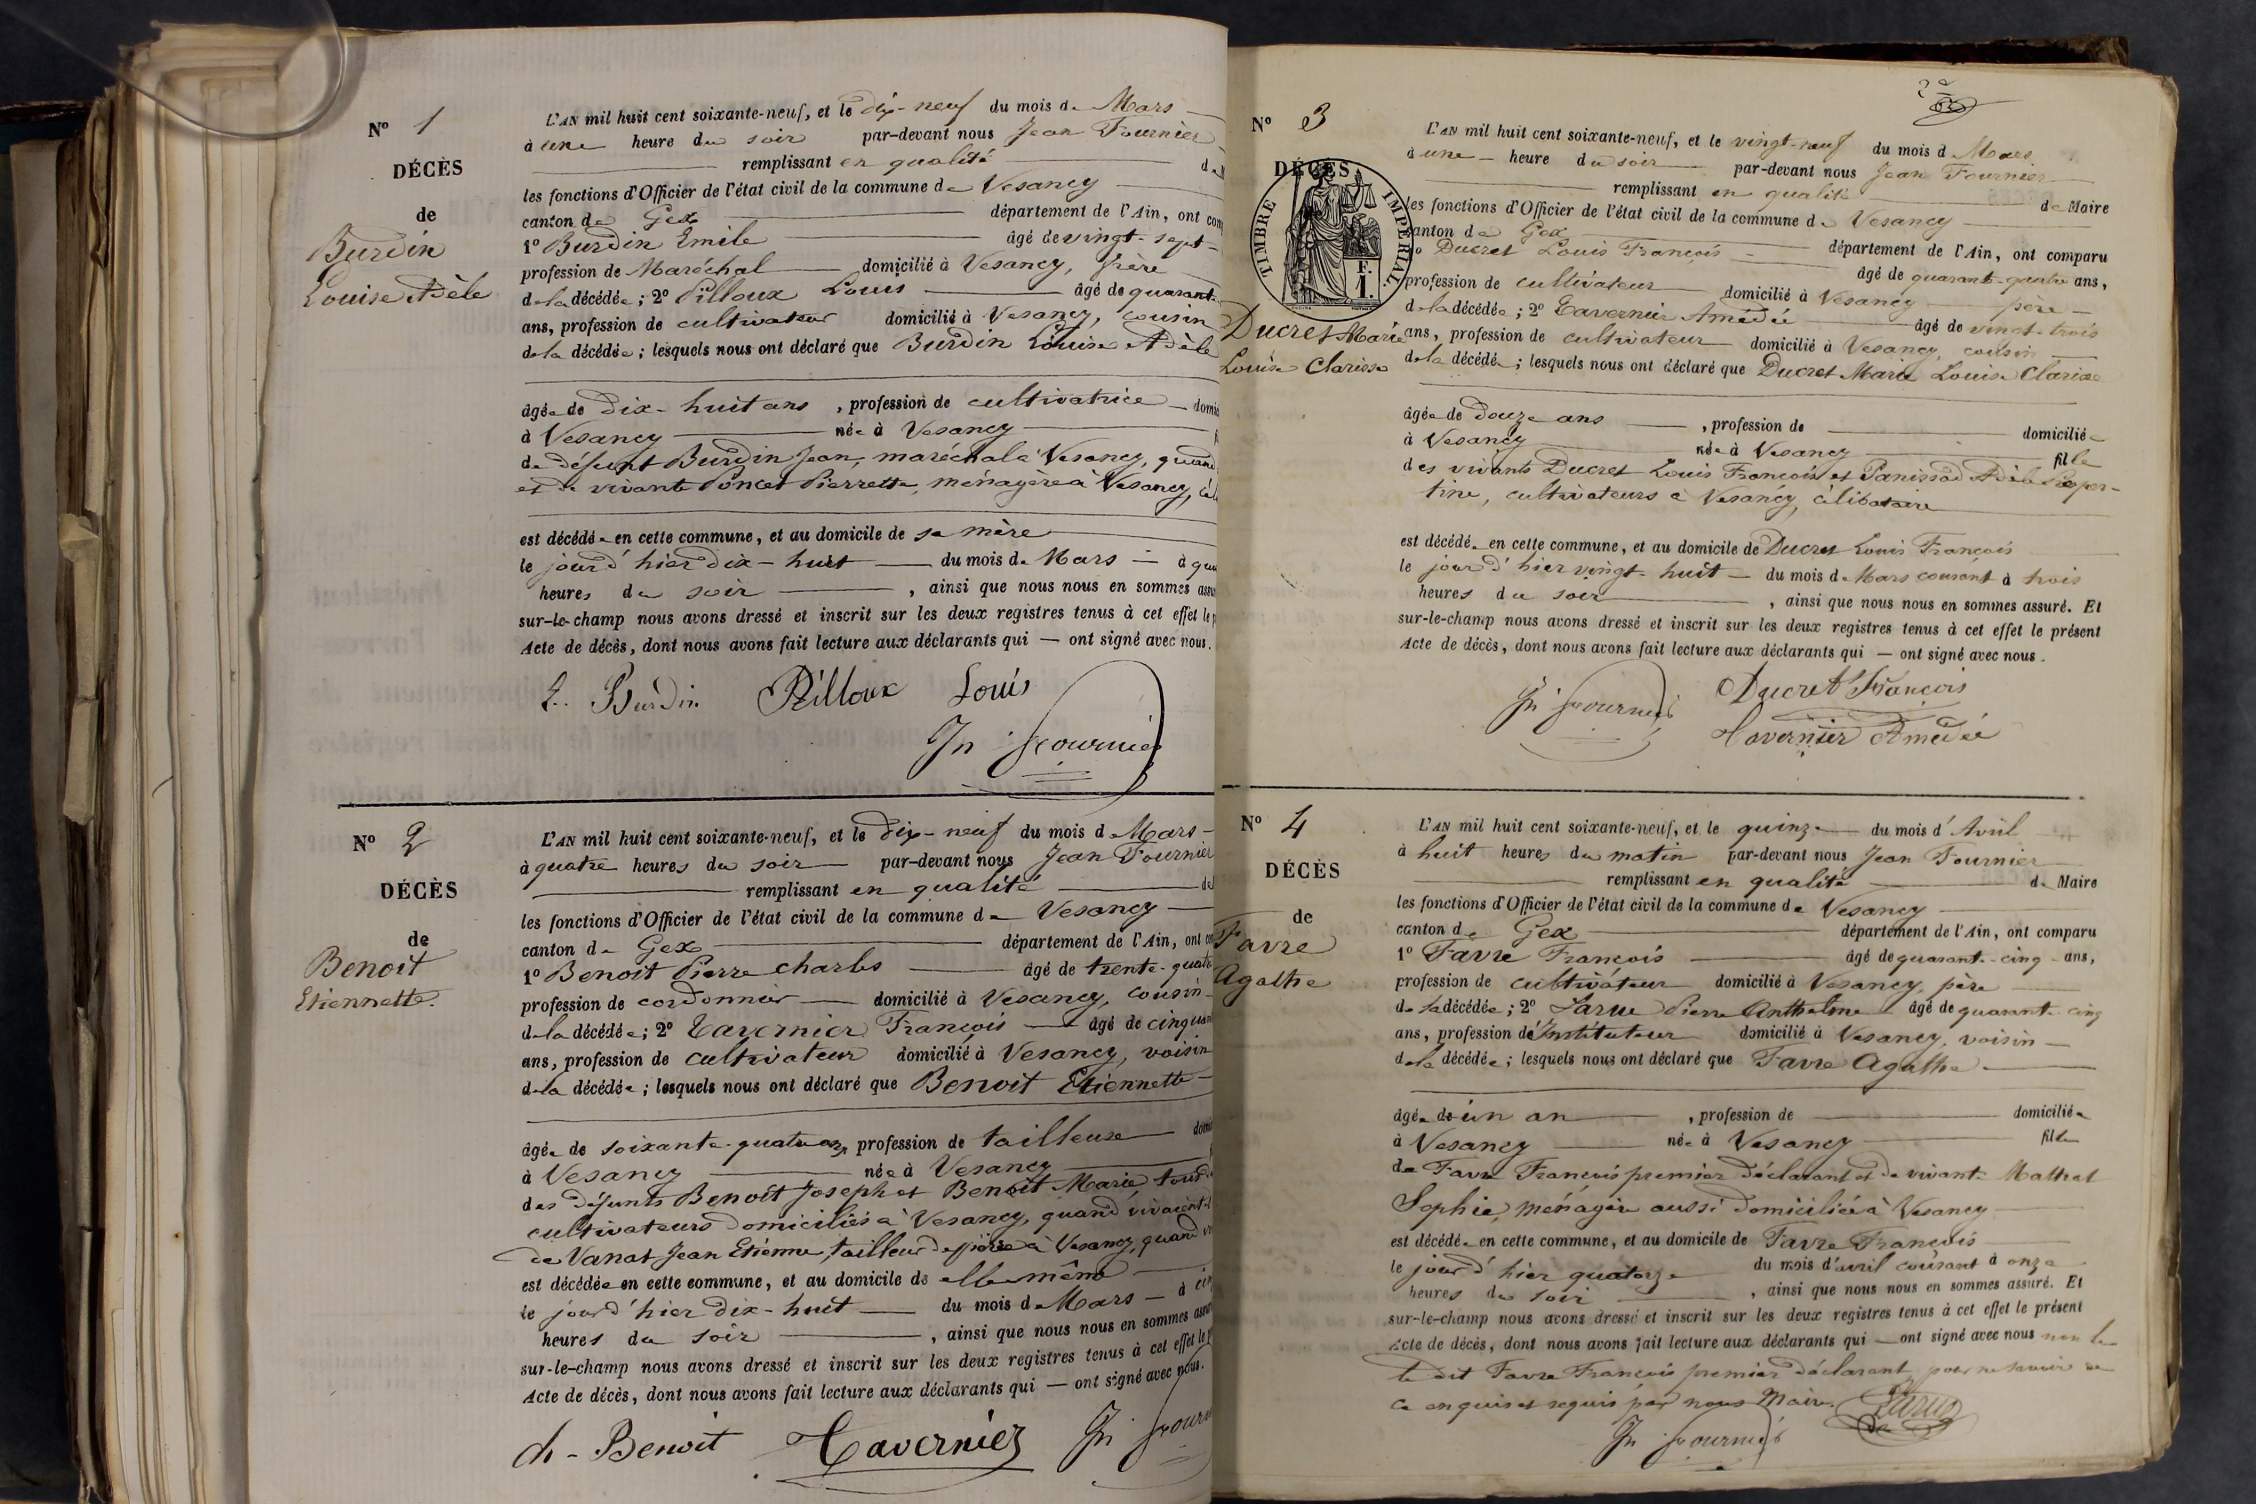 N° 1
DÉCÈS
de
Burdin
Louise Adèle
L'AN mil huit cent soixante-neuf, et le dix-neuf du mois de Mars
à une heure du soir par-devant nous Jean Fournier
remplissant en qualité d
les fonctions d'Officier de l'état civil de la commune de Vesancy
canton de Gex département de l'Ain, ont com
1° Burdin Emile âgé de vingt-sept
profession de Maréchal domicilié à Vesancy, frère
de la décédée ; 2° Pilloux Louis âgé de quarante
ans, profession de cultivateur domicilié à Vesancy, cousin
de la décédée ; lesquels nous ont déclaré que Burdin Louise Adèle
âgée de dix-huit ans , profession de cultivatrice domic
à Vesancy née à Vesancy
de défunt Burdin Jean, maréchal à Vesancy, quand
et de vivante Poncet Pierrette, ménagère à Vesancy,
est décédée en cette commune, et au domicile de sa mère
le jour d'hier dix-huit du mois de Mars à qua
heures du soir , ainsi que nous nous en sommes assu
sur-le-champ nous avons dressé et inscrit sur les deux registres tenus à cet effet le p
Acte de décès, dont nous avons fait lecture aux déclarants qui — ont signé avec nous.
E. Burdin Pilloux Louis
Jn Fournier
N° 2
DÉCÈS
de
Benoit
Etiennette.
L'AN mil huit cent soixante-neuf, et le dix-neuf du mois d Mars
à quatre heures du soir par-devant nous Jean Fournier
remplissant en qualité de
les fonctions d'Officier de l'état civil de la commune de Vesancy
canton de Gex département de l'Ain, ont co
1° Benoit Pierre Charles âgé de trente-quatre
profession de cordonnier domicilié à Vesancy, cousin
de la décédée ; 2° Tavernier François âgé de cinquan
ans, profession de cultivateur domicilié à Vesancy, voisin
de la décédée ; lesquels nous ont déclaré que Benoit Etiennette
âgée de soixante-quatre ans, profession de tailleuse domi
à Vesancy née à Vesancy
des défunts Benoit Joseph et Benoit Marie, tous d
cultivateurs domiciliés à Vesancy, quand vivaient
de Vanat Jean Etienne, tailleur de pierre à Vesancy, quand
est décédée en cette commune, et au domicile de elle même
le jour d'hier dix-huit du mois de Mars à
heures du soir , ainsi que nous nous en sommes assu
sur-le-champ nous avons dressé et inscrit sur les deux registres tenus à cet effet le p
Acte de décès, dont nous avons fait lecture aux déclarants qui — ont signé avec nous.
ch - Benoit Tavernier Jn Four
N° 3
DÉCÈS
TIMBRE IMPÉRIAL.
F.
1.
Ducret Marie
Louise Clarisse
L'AN mil huit cent soixante-neuf, et le vingt-neuf du mois d Mars
à une heure du soir par-devant nous Jean Fournier
remplissant en qualité de Maire
les fonctions d'Officier de l'état civil de la commune de Vesancy
canton de Gex département de l'Ain, ont comparu
Ducret Louis François âgé de quarante-quatre ans,
profession de cultivateur domicilié à Vesancy père
de la décédée ; 2° Tavernier Amédée âgé de vingt-trois
ans, profession de cultivateur domicilié à Vesancy, cousin
de la décédée ; lesquels nous ont déclaré que Ducret Marie Louise Clarisse
âgée de douze ans , profession de domiciliée
à Vesancy née à Vesancy fille
des vivants Ducret Louis François et Panissod Adèle Prosper-
tine, cultivateurs à Vesancy, célibataire
est décédée en cette commune, et au domicile de Ducret Louis François
le jour d'hier vingt-huit du mois de Mars courant à trois
heures du soir , ainsi que nous nous en sommes assuré. Et
sur-le-champ nous avons dressé et inscrit sur les deux registres tenus à cet effet le présent
Acte de décès, dont nous avons fait lecture aux déclarants qui — ont signé avec nous.
Jn Fournier Ducret François
Tavernier Amédée
N° 4
DÉCÈS
de
Favre
Agathe
L'AN mil huit cent soixante-neuf, et le quinze du mois d'Avril
à huit heures du matin par-devant nous Jean Fournier
remplissant en qualité de Maire
les fonctions d'Officier de l'état civil de la commune de Vesancy
canton de Gex département de l'Ain, ont comparu
1° Favre François âgé de quarante-cinq ans,
profession de cultivateur domicilié à Vesancy, père
de la décédée ; 2° Larue Pierre Anthelme âgé de quarante cinq
ans, profession d'Instituteur domicilié à Vesancy, voisin
de la décédée ; lesquels nous ont déclaré que Favre Agathe
âgée de un an , profession de domiciliée
à Vesancy née à Vesancy fille
de Favre François premier déclarant et de vivante Mathat
Sophie, ménagère aussi domiciliée à Vesancy
est décédée en cette commune, et au domicile de Favre François
le jour d'hier quatorze du mois d'avril courant à onze
heures du soir , ainsi que nous nous en sommes assuré. Et
sur-le-champ nous avons dressé et inscrit sur les deux registres tenus à cet effet le présent
Acte de décès, dont nous avons fait lecture aux déclarants qui — ont signé avec nous non le
le dit Favre François premier déclarant pour ne savoir de
ce enquis et requis par nous Maire. Larue
Jn Fournier